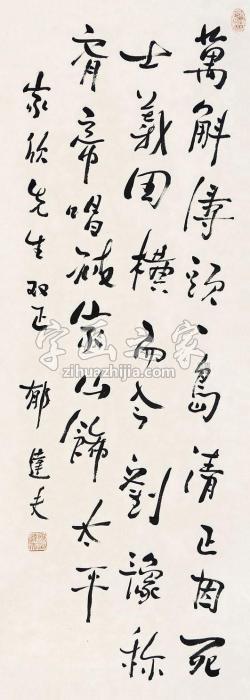 萬斛濤頭一島清正因死
士義田橫而今劉豫稱
齊帝唱破家山飾太平
家欣先生双正 郁達夫
字画之家
zihuazhijia.com